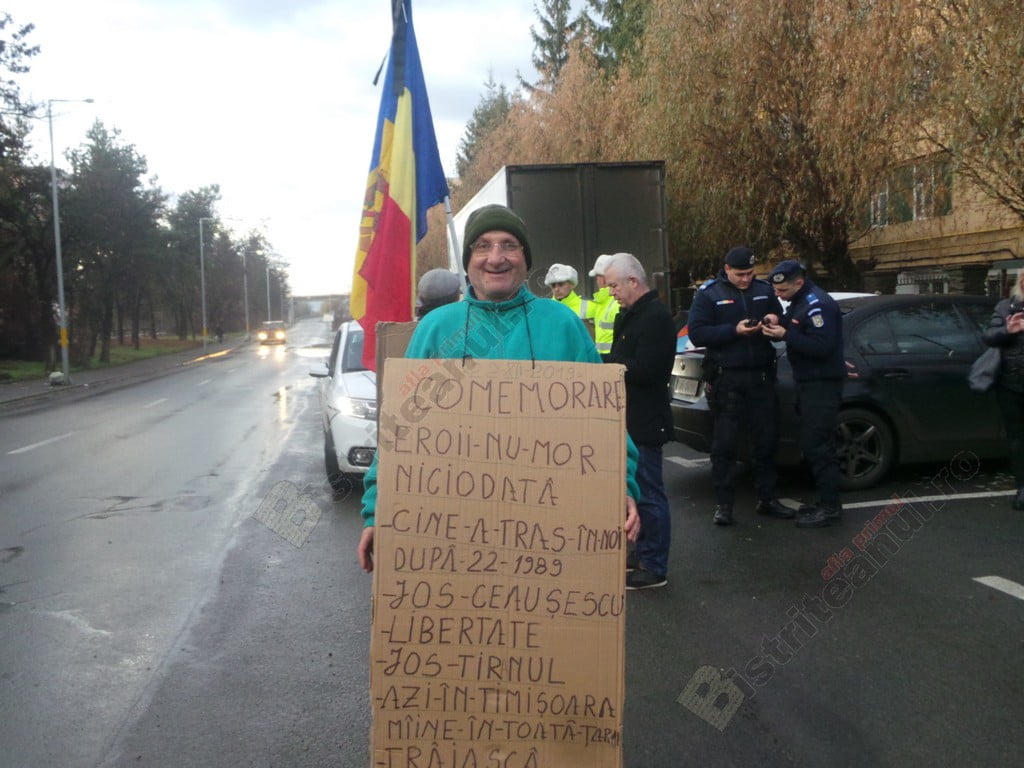 COMEMORARE
EROII-NU-MOR
NICIODATĂ
-CINE-A-TRAS-ÎN-NOI
DUPĂ-22-1989
-JOS-CEAUȘESCU
-LIBERTATE
-JOS-TIRNUL
-AZI-ÎN-TIMIȘOARA
MÎINE-ÎN-TOATĂ-ȚARA
-TRĂIASCĂ
afla primul
Bistriteanul.ro